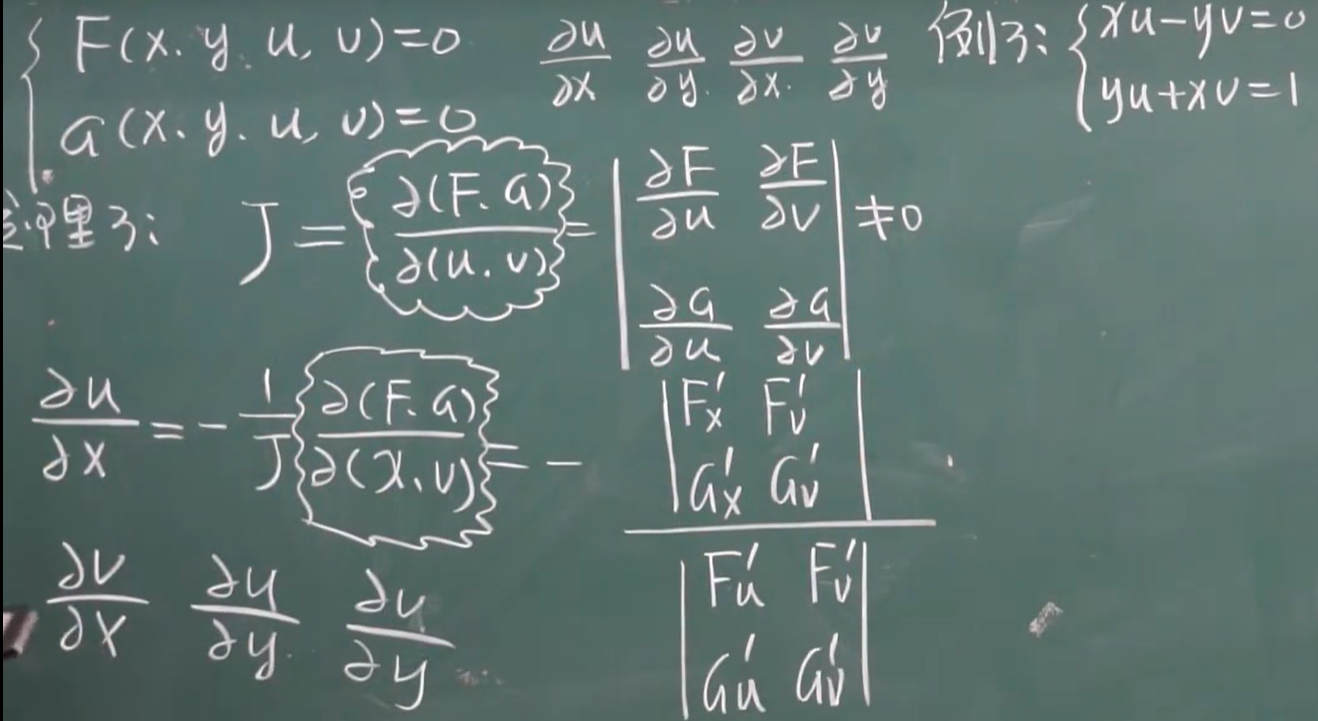 F(x.y.u,v)=0 ∂u/∂x ∂u/∂y. ∂v/∂x. ∂v/∂y 例3: { xu-yv=0
G(x.y.u,v)=0 yu+xv=1
理3: J = ∂(F.G)/∂(u.v) = | ∂F/∂u ∂F/∂v | ≠0
| ∂G/∂u ∂G/∂v |
∂u/∂x = - 1/J ∂(F.G)/∂(x,v) = - | F'x F'v |
| G'x G'v |
| F'u F'v |
| G'u G'v |
∂v/∂x ∂u/∂y. ∂u/∂y